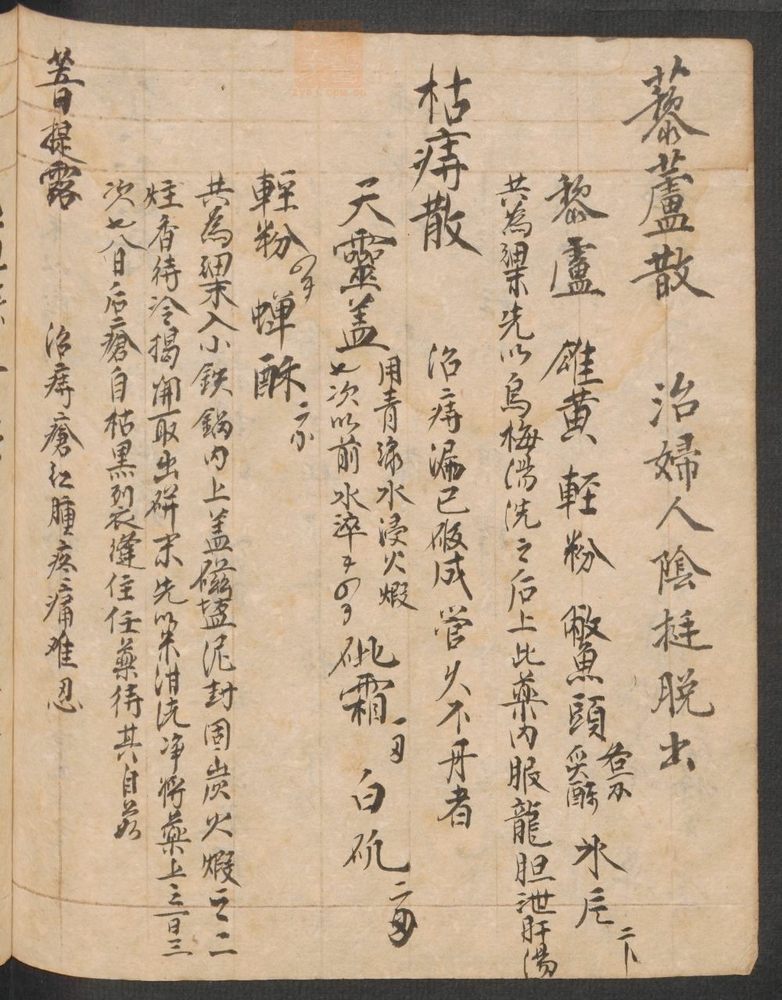 藜蘆散　治婦人陰挺脱出
藜蘆　雄黄　輕粉　鱉魚頭 各等分 炙酥　氷片 二卜
共為細末先以烏梅湯洗之后上此藥内服龍胆泄肝湯
枯痔散　治痔漏已破成管久不丹者
天靈盖 用青緑水浸火煆 七次以前水淬　砒霜 一両　白矾 二両
輕粉　蟬酥
共為細末入小鉄鍋内上盖磁盌泥封固炭火煆之二
炷香待冷揭開取出研末先以米泔洗净将藥上之一日三
次七八日后瘡自枯黒列衣縫住任藥待其自落
荅日提露　治痔瘡红腫疼痛难忍